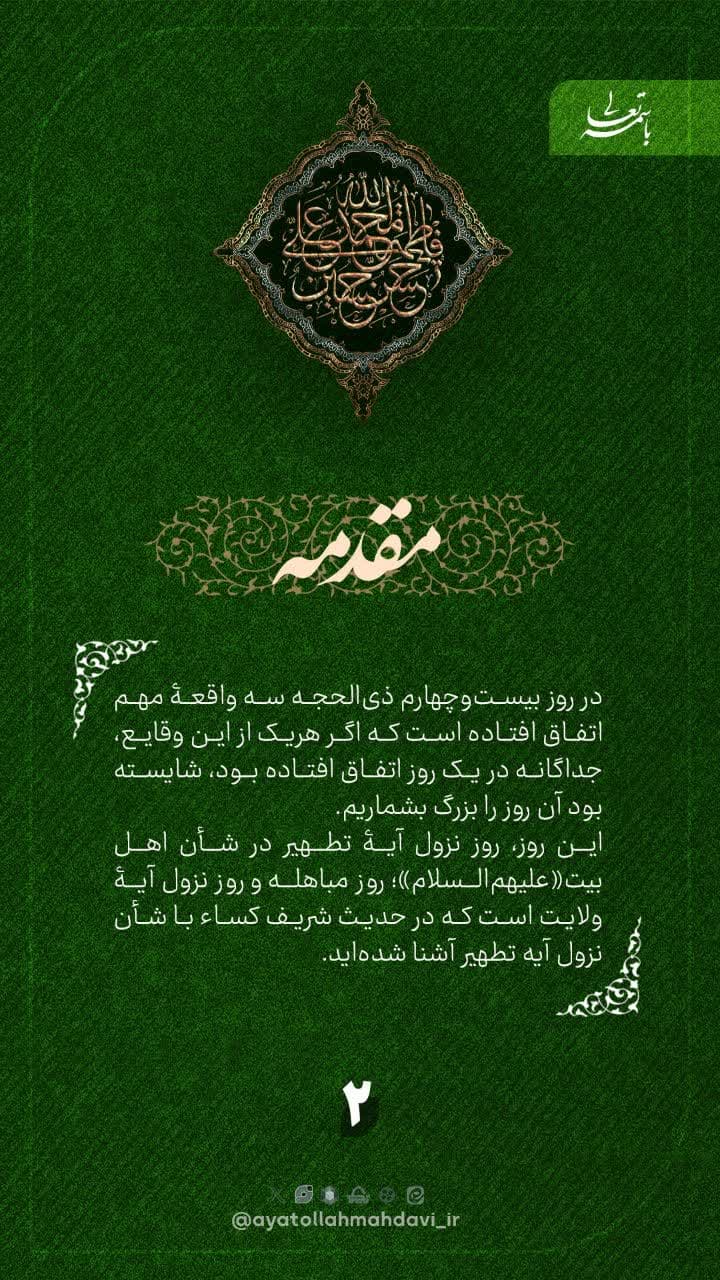 باسمه تعالی
الله
محمد
فاطمة
علی
حسن حسین
مقدمه
در روز بیست‌وچهارم ذی‌الحجه سه واقعۀ مهم
اتفاق افتاده است که اگر هریک از این وقایع،
جداگانه در یک روز اتفاق افتاده بود، شایسته
بود آن روز را بزرگ بشماریم.
این روز، روز نزول آیۀ تطهیر در شأن اهل
بیت«علیهم‌السلام»؛ روز مباهله و روز نزول آیۀ
ولایت است که در حدیث شریف کساء با شأن
نزول آیه تطهیر آشنا شده‌اید.
۲
@ayatollahmahdavi_ir